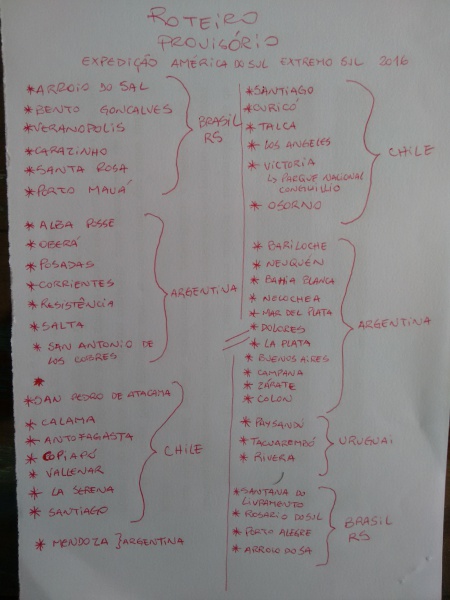 ROTEIRO
PROVISÓRIO
EXPEDIÇÃO AMÉRICA DO SUL EXTREMO SUL 2016
*ARROIO DO SAL
*BENTO GONCALVES
*VERANOPOLIS
*CARAZINHO
*SANTA ROSA
*PORTO MAUÁ
BRASIL
RS
* ALBA POSSE
*OBERÁ
*POSADAS
*CORRIENTES
*RESISTÊNCIA
*SALTA
* SAN ANTONIO DE
LOS COBRES
ARGENTINA
*
*SAN PEDRO DE ATACAMA
* CALAMA
*ANTOFAGASTA
* COPIAPÓ
* VALLENAR
* LA SERENA
* SANTIAGO
CHILE
* MENDOZA } ARGENTINA
*SANTIAGO
*CURICÓ
* TALCA
* LOS ANGELES
* VICTORIA
↳ PARQUE NACIONAL
CONGUILLIO
* OSORNO
CHILE
* BARILOCHE
* NEUQUÉN
* BAHIA BLANCA
* NECOCHEA
* MAR DEL PLATA
*DOLORES
* LA PLATA
* BUENOS AIRES
* CAMPANA
* ZÁRATE
* COLON
ARGENTINA
*PAYSANDÚ
*TACUAREMBÓ
* RIVERA
URUGUAI
*SANTANA DO
LIVRAMENTO
* ROSARIO DO SUL
* PORTO ALEGRE
* ARROIO DO SA
BRASIL
RS